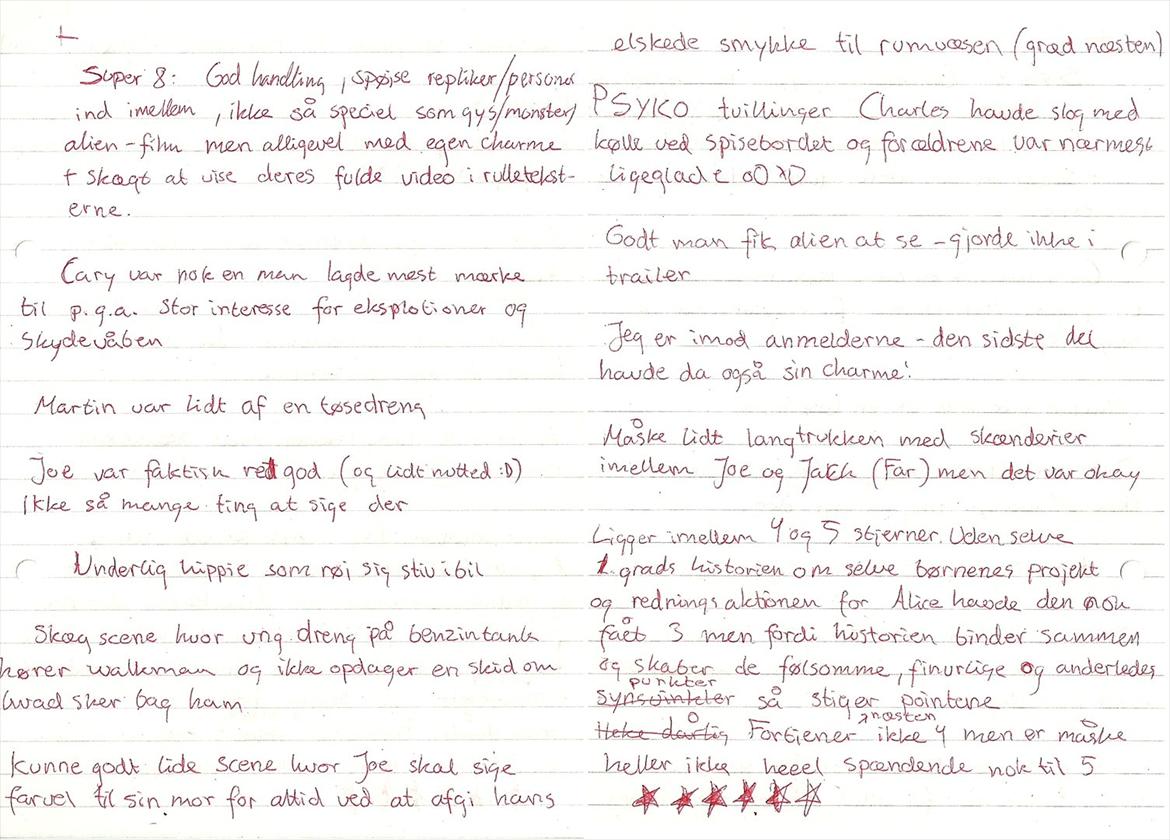 Super 8: God handling, spøjse repliker/persone
ind imellem, ikke så speciel som gys/monster/
alien-film men alligevel med egen charme
+ skægt at vise deres fulde video i rulletekst-
erne.
Cary var nok en man lagde mest mærke
til p.g.a. stor interesse for eksplotioner og
skydevåben
Martin var lidt af en tøsedreng
Joe var faktisk ret god (og lidt nutted :D)
ikke så mange ting at sige der
Underlig hippie som røj sig stiv i bil
Skæg scene hvor ung dreng på benzintank
hører walkman og ikke opdager en skid om
hvad sker bag ham
Kunne godt lide scene hvor Joe skal sige
farvel til sin mor for altid ved at afgi hans
elskede smykke til rumvæsen (græd næsten)
PSYKO tvillinger Charles havde slog med
kølle ved spisebordet og forældrene var nærmest
ligeglade oO XD
Godt man fik alien at se - gjorde ikke i
trailer
Jeg er imod anmelderne - den sidste del
havde da også sin charme!
Måske lidt langtrukken med skænderier
imellem Joe og Jack (Far) men det var okay
Ligger imellem 4 og 5 stjerner. Uden selve
1. grads historien om selve børnenes projekt
og redningsaktionen for Alice havde den nok
fået 3 men fordi historien binder sammen
og skaber de følsomme, finurlige og anderledes
synsvinkler punkter så stiger pointene
Heke dårlig Fortjener næsten ikke 4 men er måske
heller ikke heeel spændende nok til 5